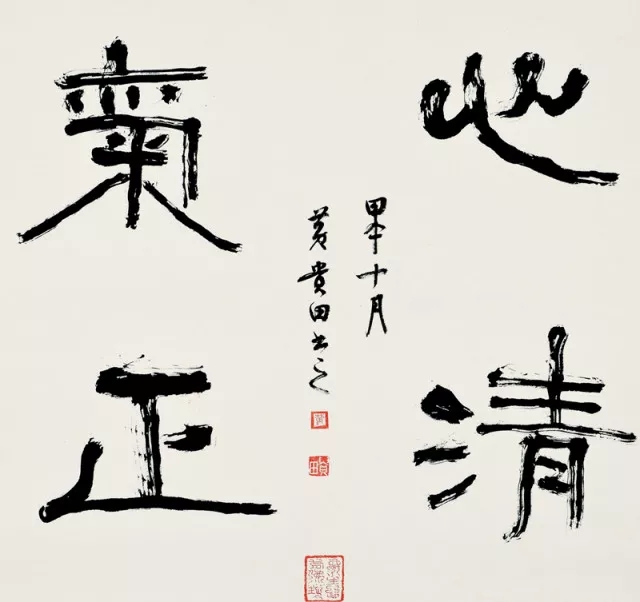 心清
氣正
甲午十月
黄貴田书之